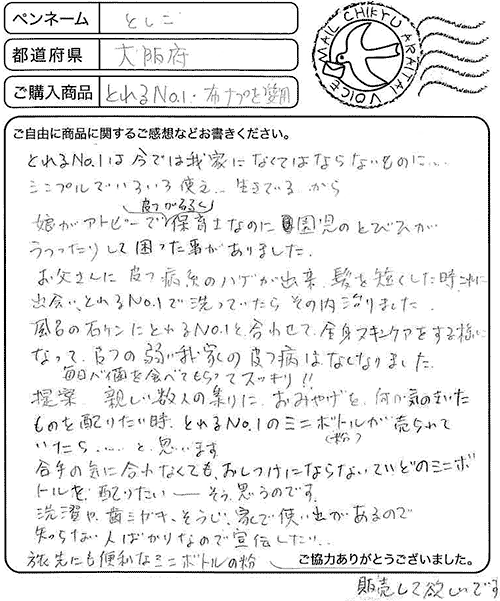 ペンネーム としこ
都道府県 大阪府
ご購入商品 とれるNo.1・布ナプを愛用
MAIL CHIKYU ARAITAI VOICE
ご自由に商品に関するご感想などお書きください。
とれるNo.1は今では我家になくてはならないものに…
シンプルでいろいろ使え 生きている から
皮フが弱く
娘がアトピーで保育士なのに園児のとびひが
うつったりして困った事がありました。
お父さんに皮フ病系のハゲが出来、髪を短くした時
出会い、とれるNo.1で洗っていたらその内治りました。
風呂の石ケンにとれるNo.1と合わせて、全身スキンケアをする様に
なって、皮フの弱い我家の皮フ病はなくなりました。
毎日 を食べてもらってスッキリ!!
提案 親しい数人の集りに、おみやげを、何か気のきいた
ものを配りたい時、とれるNo.1のミニボトルが売られて
(粉)
いたら……と思います
合手の気に合わなくても、おしつけにならないていどのミニボ
トルを、配りたい ― そう思うのです。
洗濯や、歯ミガキ、そうじ、家で使い出があるので
知らない人ばかりなので宣伝したい…
旅先にも便利なミニボトルの粉
ご協力ありがとうございました。
販売して欲しいです